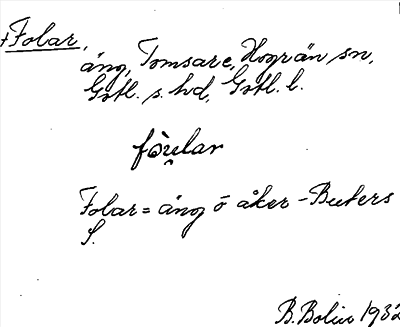 +Folar,
äng, Tomsare, Hogrän sn,
Gotl. s. hd, Gotl. l.
Folar = äng o åker - Buters
S.
B. Bolin 1932